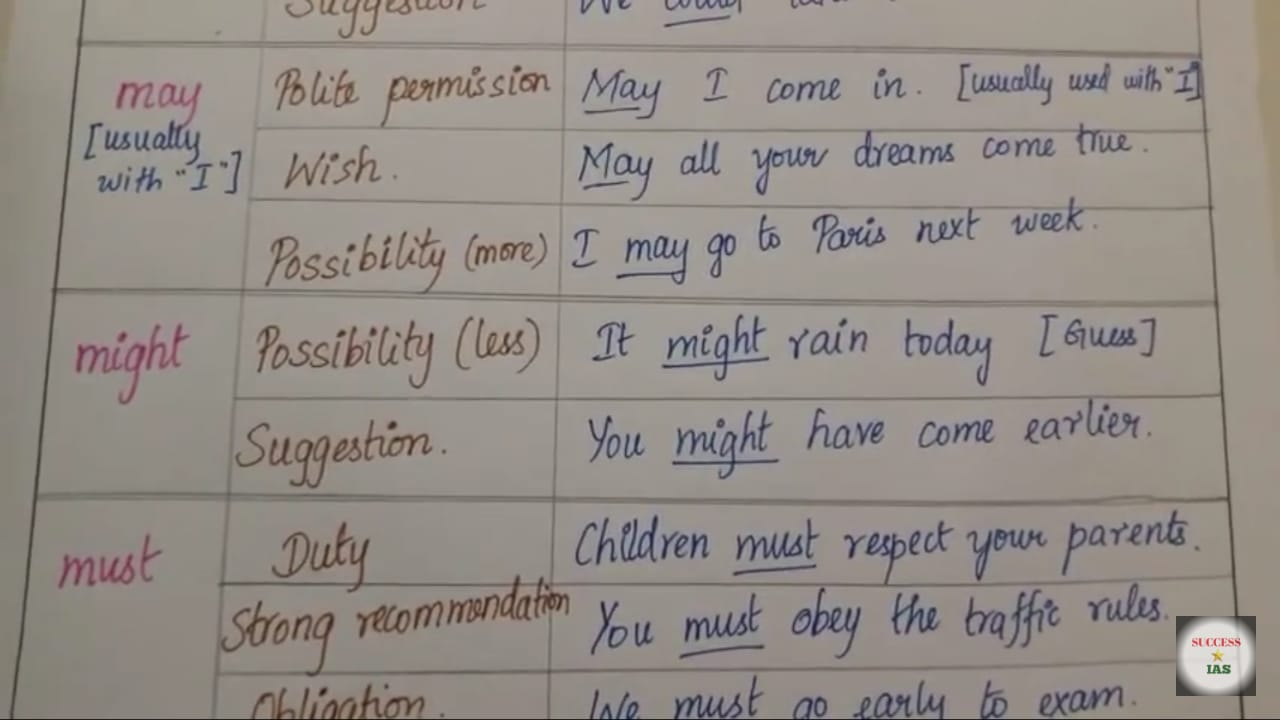 Suggestion We could
may
[usually
with "I"]
Polite permission May I come in. [usually used with "I]
Wish. May all your dreams come true.
Possibility (more) I may go to Paris next week.
might Possibility (less) It might rain today [Guess]
Suggestion. You might have come earlier.
must Duty Children must respect your parents.
Strong recommendation You must obey the traffic rules.
Obligation. We must go early to exam.
SUCCESS
IAS